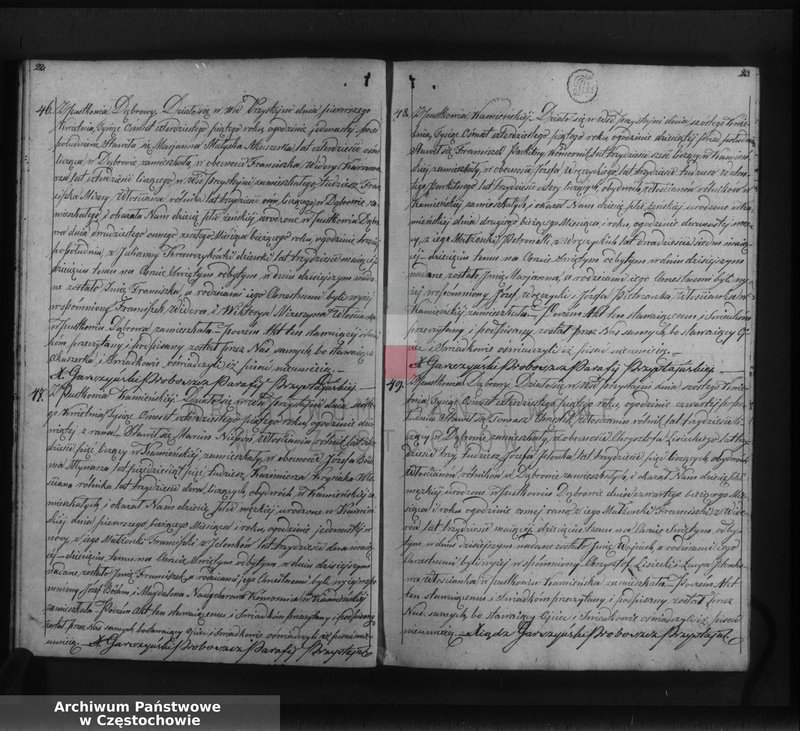 22.
46. Z pustkowia Dąbrowy. Działo się w Wsi Przystajni dnia pierwszego
Kwietnia, Tysiąc Ośmset czterdziestego piątego roku, ogodzinie jedenastej przed
południem Stawiła się Maryanna Małycka Akuszerka, lat czterdzieście
licząca w Dąbrowie zamieszkała, w obecności Franciszka Widery
lat czterdzieści liczącego w Wsi Przystajni zamieszkałego, Tudzież Fran-
ciszka Mizery Włościana rolnika lat trzydzieści liczącego w Dąbrowie za-
mieszkałego i okazała Nam dziecię płci żeńskiej urodzone w Pustkowiu Dąbro-
wa dnia dwudziestego osmego zeszłego Miesiąca bieżącego roku, ogodzinie trzeciej
popołudniu, z Julianny Krawczykonki dziewki, lat trzydzieści mającej
dziecięciu temu na Chrzcie Świętym odbytym w dniu dzisiejszym nada-
ne zostało Imię Franciszka, a rodzicami jego Chrzestnemi byli wyżej
wspomniony Franciszek Widera i Wiktorya Mizerzyna Włościanka
w Pustkowiu Dąbrowa zamieszkała. Poczem Akt ten stawiającej i Świad-
kom przeczytany i podpisany został przez Nas samych, bo stawająca
Akuszerka i Świadkowie oświadczyli iż pisać nieumieją.
X. Garczyński Proboszcz Parafii Przystajńskiej
47. Z Pustkowia Kamieńskiej. Działo się w Wsi Przystajni dnia szóste-
go Kwietnia, Tysiąc Ośmset czterdziestego piątego roku, ogodzinie dzie-
wiątej z rana. Stawił się Marcin Włościanin rolnik, lat trzy-
dzieście pięć liczący w Kamieńskiej zamieszkały w obecności Józefa
Młynarza lat pięćdziesiąt pięć, tudzież Kazimierza Krysiaka Wło-
ściana rolnika lat trzydzieści dwa liczących, obydwóch w Kamieńskiej za-
mieszkałych, i okazał Nam dziecię płci męzkiej urodzone w Kamień-
skiej dnia pierwszego bieżącego Miesiąca i roku, ogodzinie jedenastej w
nocy, z jego Małżonki Franciszki z Jelonków lat trzydzieści dwa mają-
cej dziecięciu temu na Chrzcie Świętym odbytym w dniu dzisiejszym
nadane zostało Imię Franciszek, a rodzicami jego Chrzestnemi byli wyżej wspo-
mniony Józef i Magdalena Komornica w Kamieńskiej
zamieszkała. Poczem Akt ten stawającemu i Świadkom przeczytany i podpisany
został przez Nas samych, bo stawający Ojciec i Świadkowie oświadczyli iż pisać nie-
umieją. X. Garczyński Proboszcz Parafii Przystajń
23.
48. Z Pustkowia Kamieńskiej. Działo się w Wsi Przystajni dnia szóstego Kwie-
tnia, Tysiąc Ośmset czterdziestego piątego roku, ogodzinie dziesiątej przed południem
Stawił się Franciszek Parkitny Komornik, lat trzydzieści sześć liczący w Kamień-
skiej zamieszkały, w obecności Józefa Wręczyckiego, lat trzydzieści, tudzież Walen-
tego Parkitnego lat trzydzieści cztery liczących, obydwóch Włościanów rolników w
Kamieńskiej zamieszkałych, i okazał Nam dziecię płci żeńskiej urodzone w Ka-
mieńskiej, dnia drugiego bieżącego Miesiąca i roku, ogodzinie dwunastej w no-
cy, z jego Małżonki Petronelli z Wręczyckich lat dwadzieścia siedm mają-
cej dziecięciu temu na Chrzcie Świętym odbytym w dniu dzisiejszym
nadane zostało Imię Marjanna, a rodzicami jego Chrzestnemi byli wy-
żej wspomniony Józef Wręczycki i Józefa Włościanka w
Kamieńskiej zamieszkała. Poczem Akt ten stawającemu i Świadkom
przeczytany i podpisany został przez Nas samych, bo stawający Oj-
ciec i Świadkowie oświadczyli iż pisać nieumieją.
X. Garczyński Proboszcz Parafii Przystajńskiej
49. Z Pustkowia Dąbrowy. Działo się w Wsi Przystajni dnia szóstego Kwie-
tnia, Tysiąc Ośmset czterdziestego piątego roku, ogodzinie czwartej popo-
łudniu Stawił się Tomasz Włościanin rolnik, lat trzydzieści
liczący w Dąbrowie zamieszkały, w obecności Chrysztofa Lisieckiego lat trzy-
dzieści trzy, tudzież Józefa Jelonka, lat trzydzieści pięć liczących, obydwóch
Włościanów rolników w Dąbrowie zamieszkałych, i okazał Nam dziecię płci
męzkiej urodzone w Pustkowiu Dąbrowie dnia czwartego bieżącego Mie-
siąca i roku ogodzinie osmej rano, z jego Małżonki Franciszki z Wide-
rów lat trzydzieści mającej, dziecięciu temu na Chrzcie Świętym odby-
tym w dniu dzisiejszym nadane zostało Imię Wojciech, a rodzicami jego
Chrzestnemi byli wyżej wspomniony Chrysztof Lisiecki i Łucya
Włościanka w Pustkowiu Kamieńska zamieszkała. Poczem Akt
ten stawającemu i Świadkom przeczytany i podpisany został przez
Nas samych, bo stawający Ojciec i Świadkowie oświadczyli iż pisać
nieumieją. Xiądz Garczyński Proboszcz Przystajń
Archiwum Państwowe
w Częstochowie